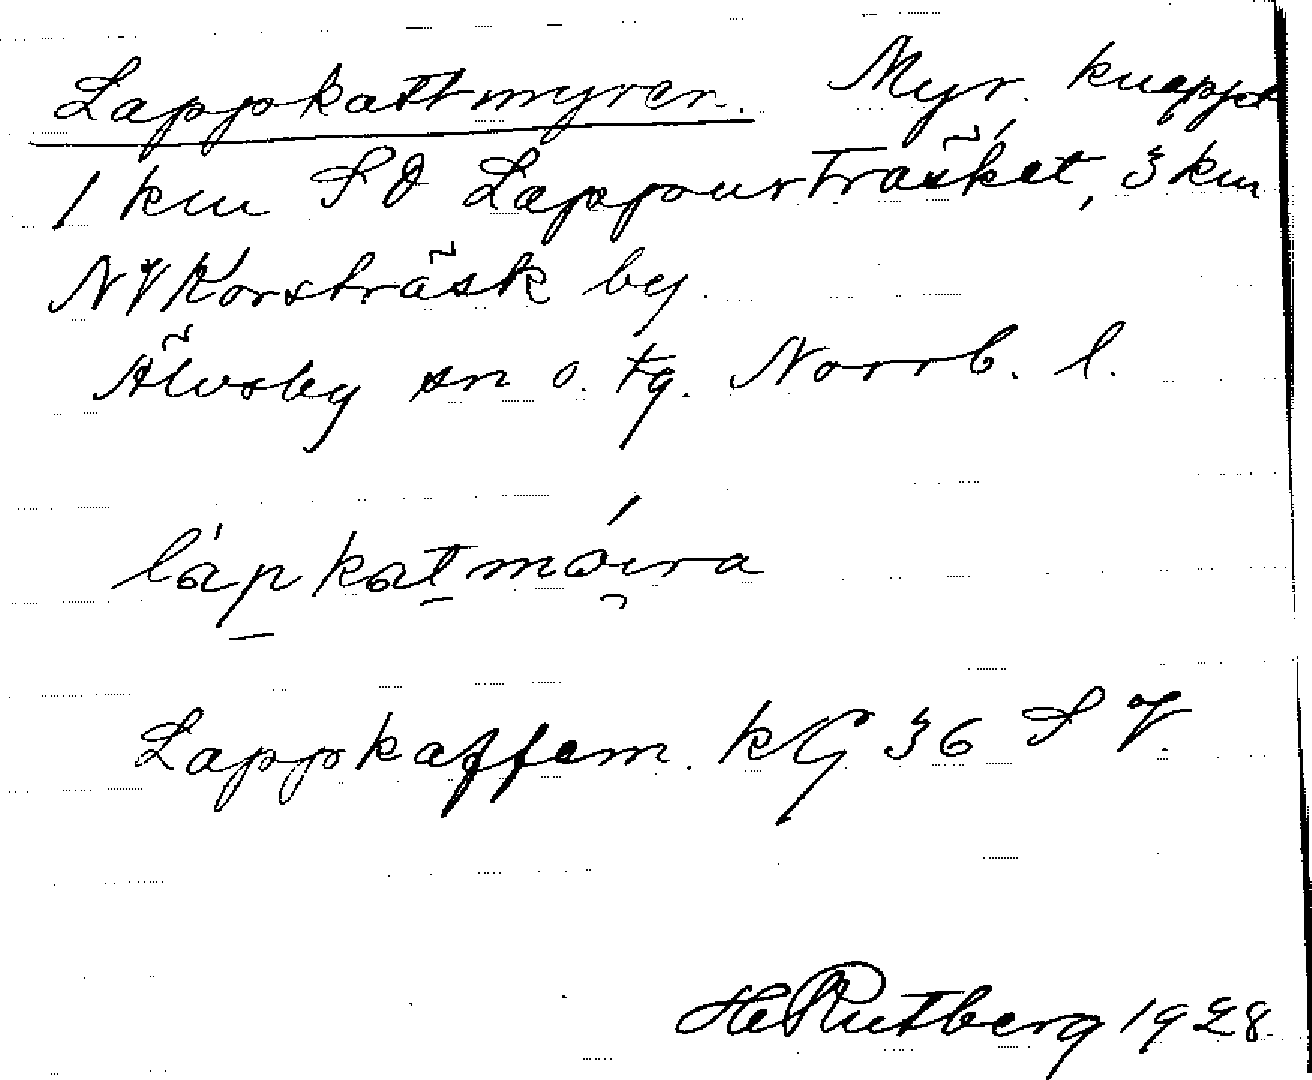 Lappkattmyren. Myr. knappt
1 km SO Lappurträsket, 3 km
NV Korsträsk by.
Älvsby sn o. tg. Norrb. l.
låpkatmöira
Lappkaffem. kG 36 SV.
HeRutberg 1928